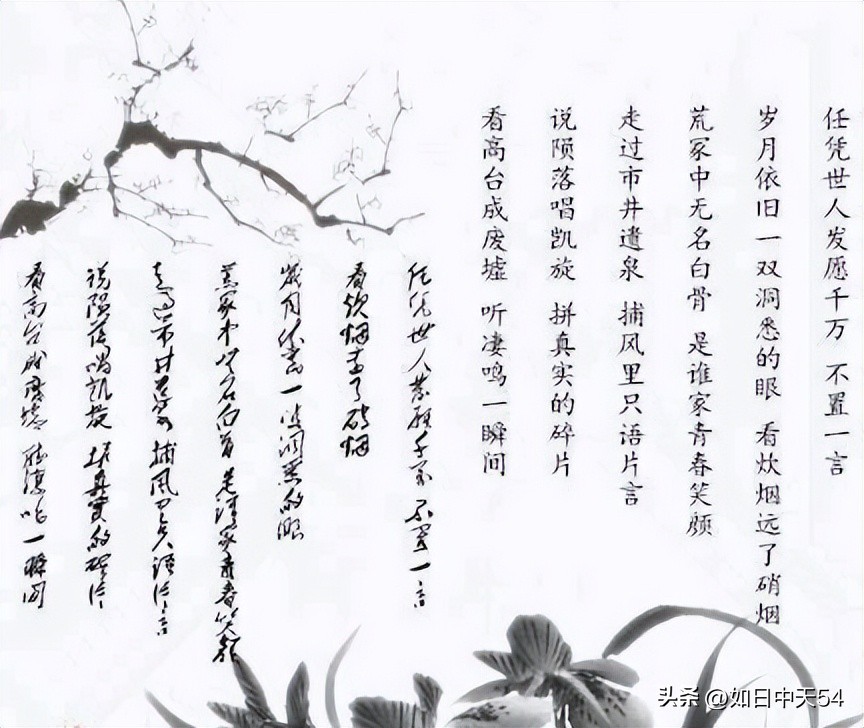 任凭世人发愿千万 不置一言
岁月依旧一双洞悉的眼 看炊烟远了硝烟
荒冢中无名白骨 是谁家青春笑颜
走过市井遗泉 捕风里只语片言
说陨落唱凯旋 拼真实的碎片
看高台成废墟 听凄鸣一瞬间
任凭世人发愿千万 不置一言
看炊烟远了硝烟
岁月依旧一双洞悉的眼
荒冢中无名白骨 是谁家青春笑颜
走过市井遗泉 捕风里只语片言
说陨落唱凯旋 拼真实的碎片
看高台成废墟 听凄鸣一瞬间
头条 @如日中天54